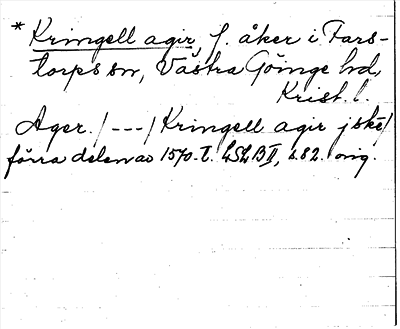 * Kringell agir, f. åker i Fars-
torps sn, Västra Göinge hd,
Krist. l.
Ager. / --- / Kringell agir j skè /
förra delen av 1570-t. LSLB II, s. 82. orig.